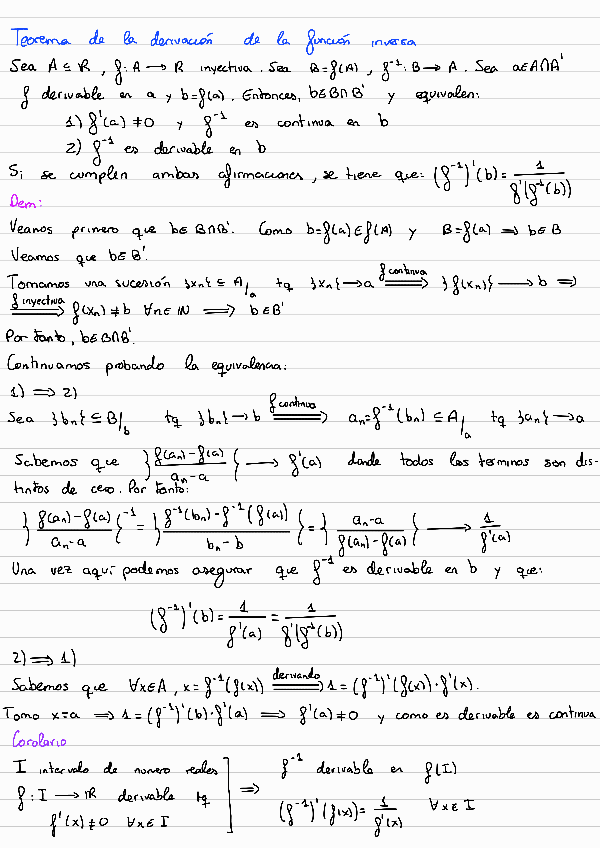 Teorema de la derivación de la función inversa
Sea A ⊆ ℝ, f: A → ℝ inyectiva. Sea B=f(A), f⁻¹: B → A. Sea a∈A∩A'
f derivable en a y b=f(a). Entonces, b∈B∩B' y equivalen:
1) f'(a) ≠0 y f⁻¹ es continua en b
2) f⁻¹ es derivable en b
Si se cumplen ambas afirmaciones, se tiene que: (f⁻¹)'(b)= 1/f'(f⁻¹(b))
Dem:
Veamos primero que b∈ B∩B'. Como b=f(a)∈f(A) y B=f(a) ⟹ b∈B
Veamos que b∈B'.
Tomamos una sucesión }xn{ ⊆ A/a tq }xn{ → a ⟹ (f continua) }f(xn){ → b ⟹
⟹ (f inyectiva) f(xn) ≠ b ∀n∈ℕ ⟹ b∈B'
Por tanto, b∈B∩B'.
Continuamos probando la equivalencia:
1) ⟹ 2)
Sea }bn{ ⊆ B/b tq }bn{ → b ⟹ (f continua) an=f⁻¹(bn) ⊆ A/a tq }an{ → a
Sabemos que }(f(an)-f(a))/(an-a){ → f'(a) donde todos los terminos son dis-
tintos de cero. Por tanto:
}(f(an)-f(a))/(an-a){⁻¹ = }(f⁻¹(bn)-f⁻¹(f(a)))/(bn-b){ = }(an-a)/(f(an)-f(a)){ → 1/f'(a)
Una vez aquí podemos asegurar que f⁻¹ es derivable en b y que:
(f⁻¹)'(b)= 1/f'(a) = 1/f'(f⁻¹(b))
2) ⟹ 1)
Sabemos que ∀x∈A, x=f⁻¹(f(x)) ⟹ (derivando) 1=(f⁻¹)'(f(x))·f'(x).
Tomo x=a ⟹ 1=(f⁻¹)'(b)·f'(a) ⟹ f'(a)≠0 y como es derivable es continua
Corolario
I intervalo de numero reales
f: I → ℝ derivable tq
f'(x)≠0 ∀x∈I
⟹
f⁻¹ derivable en f(I)
(f⁻¹)'(f(x))= 1/f'(x) ∀x∈I